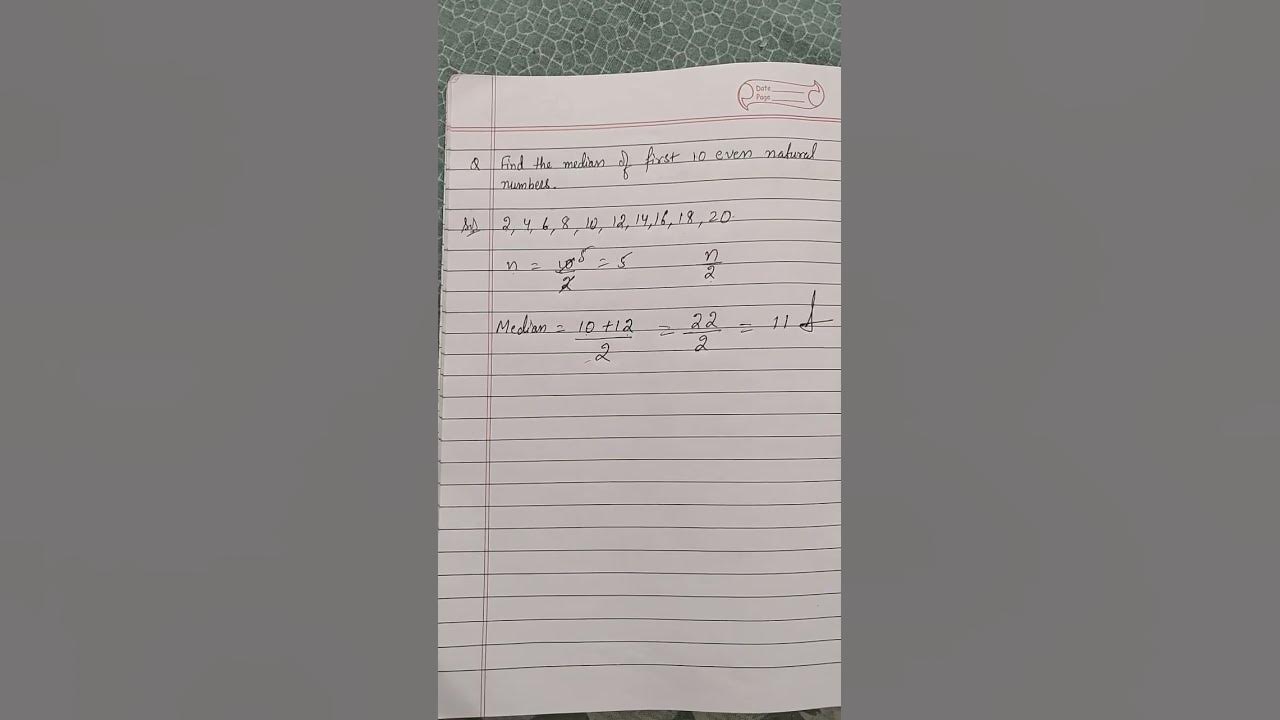 Date
Page
Q Find the median of first 10 even natural
numbers.
Sol 2, 4, 6, 8, 10, 12, 14, 16, 18, 20.
n = 10/2 5 = 5 n/2
Median = 10+12/2 = 22/2 = 11